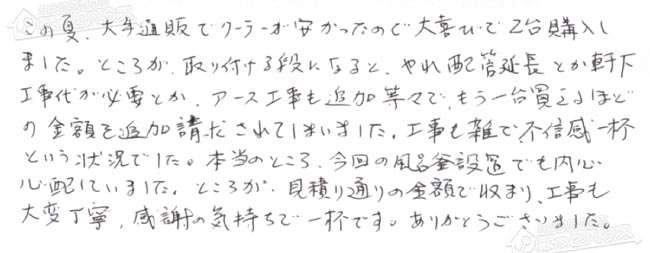 この夏、大手通販でクーラーが安かったので大喜びで2台購入し
ました。ところが、取り付ける段になると、やれ配管延長とか軒下
工事代が必要とか、アース工事も追加等々で、もう一台買えるほど
の金額を追加請求されてしまいました。工事も雑で、不信感一杯
という状況でした。本当のところ、今回の風呂釜設置でも内心
心配していました。ところが、見積り通りの金額で収まり、工事も
大変丁寧、感謝の気持ちで一杯です。ありがとうございました。